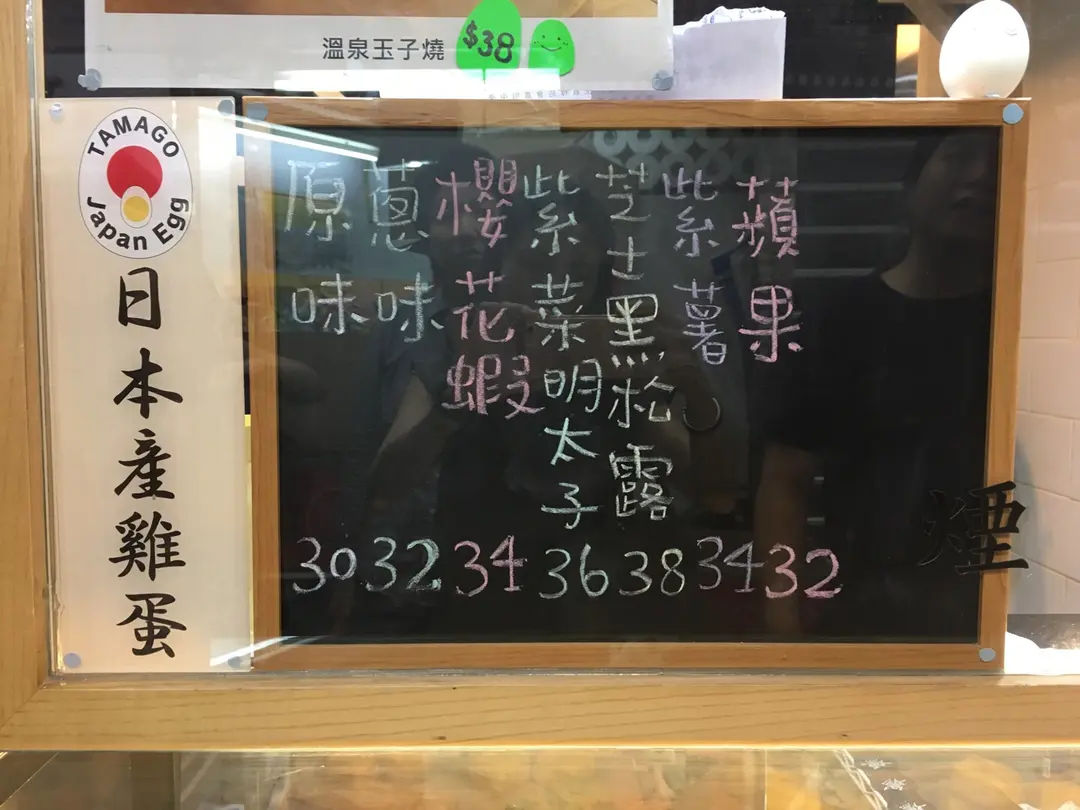 溫泉玉子燒 $38
TAMAGO
Japan Egg
日本產雞蛋
原味 30
蔥味 32
櫻花蝦 34
紫菜明太子 36
芝士黑松露 38
紫薯 34
蘋果 32
煙